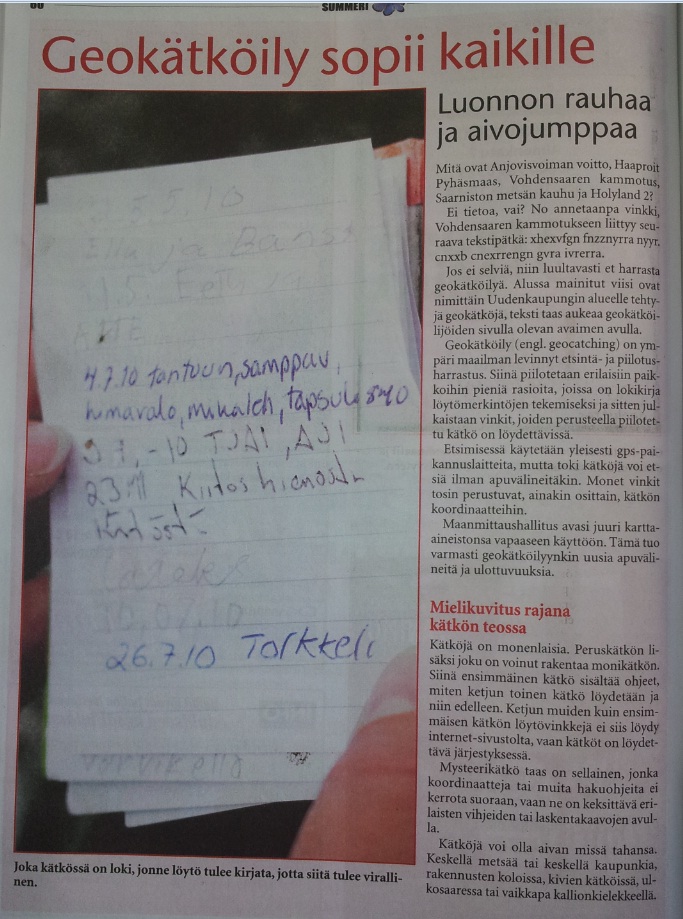 SUMMERI
Geokätköily sopii kaikille
5.5.10
Ella ja
4.7.10 tontuun, samppau,
humavalo, mikalch, tapsula
-10 TJAI, AJI
23 Kiitos hienosta
26.7.10 Torkkeli
Joka kätkössä on loki, jonne löytö tulee kirjata, jotta siitä tulee viralli-
nen.
Luonnon rauhaa
ja aivojumppaa
Mitä ovat Anjovisvoiman voitto, Haaproit
Pyhäsmaas, Vohdensaaren kammotus,
Saarniston metsän kauhu ja Holyland 2?
Ei tietoa, vai? No annetaanpa vinkki,
Vohdensaaren kammotukseen liittyy seu-
raava tekstipätkä: xhexvfgn fnzznyrra nyyr,
cnxxb cnexrrengn gvra ivrerra.
Jos ei selviä, niin luultavasti et harrasta
geokätköilyä. Alussa mainitut viisi ovat
nimittäin Uudenkaupungin alueelle tehty-
jä geokätköjä, teksti taas aukeaa geokätköi-
lijöiden sivulla olevan avaimen avulla.
Geokätköily (engl. geocatching) on ym-
päri maailman levinnyt etsintä- ja piilotus-
harrastus. Siinä piilotetaan erilaisiin paik-
koihin pieniä rasioita, joissa on lokikirja
löytömerkintöjen tekemiseksi ja sitten jul-
kaistaan vinkit, joiden perusteella piilotet-
tu kätkö on löydettävissä.
Etsimisessä käytetään yleisesti gps-pai-
kannuslaitteita, mutta toki kätköjä voi et-
siä ilman apuvälineitäkin. Monet vinkit
tosin perustuvat, ainakin osittain, kätkön
koordinaatteihin.
Maanmittaushallitus avasi juuri kartta-
aineistonsa vapaaseen käyttöön. Tämä tuo
varmasti geokätköilyynkin uusia apuväli-
neitä ja ulottuvuuksia.
Mielikuvitus rajana
kätkön teossa
Kätköjä on monenlaisia. Peruskätkön li-
säksi joku on voinut rakentaa monikätkön.
Siinä ensimmäinen kätkö sisältää ohjeet,
miten ketjun toinen kätkö löydetään ja
niin edelleen. Ketjun muiden kuin ensim-
mäisen kätkön löytövinkkejä ei siis löydy
internet-sivustolta, vaan kätköt on löydet-
tävä järjestyksessä.
Mysteerikätkö taas on sellainen, jonka
koordinaatteja tai muita hakuohjeita ei
kerrota suoraan, vaan ne on keksittävä eri-
laisten vihjeiden tai laskentakaavojen avul-
la.
Kätköjä voi olla aivan missä tahansa.
Keskellä metsää tai keskellä kaupunkia,
rakennusten koloissa, kivien kätköissä, ul-
kosaaressa tai vaikkapa kallionkielekkeellä.